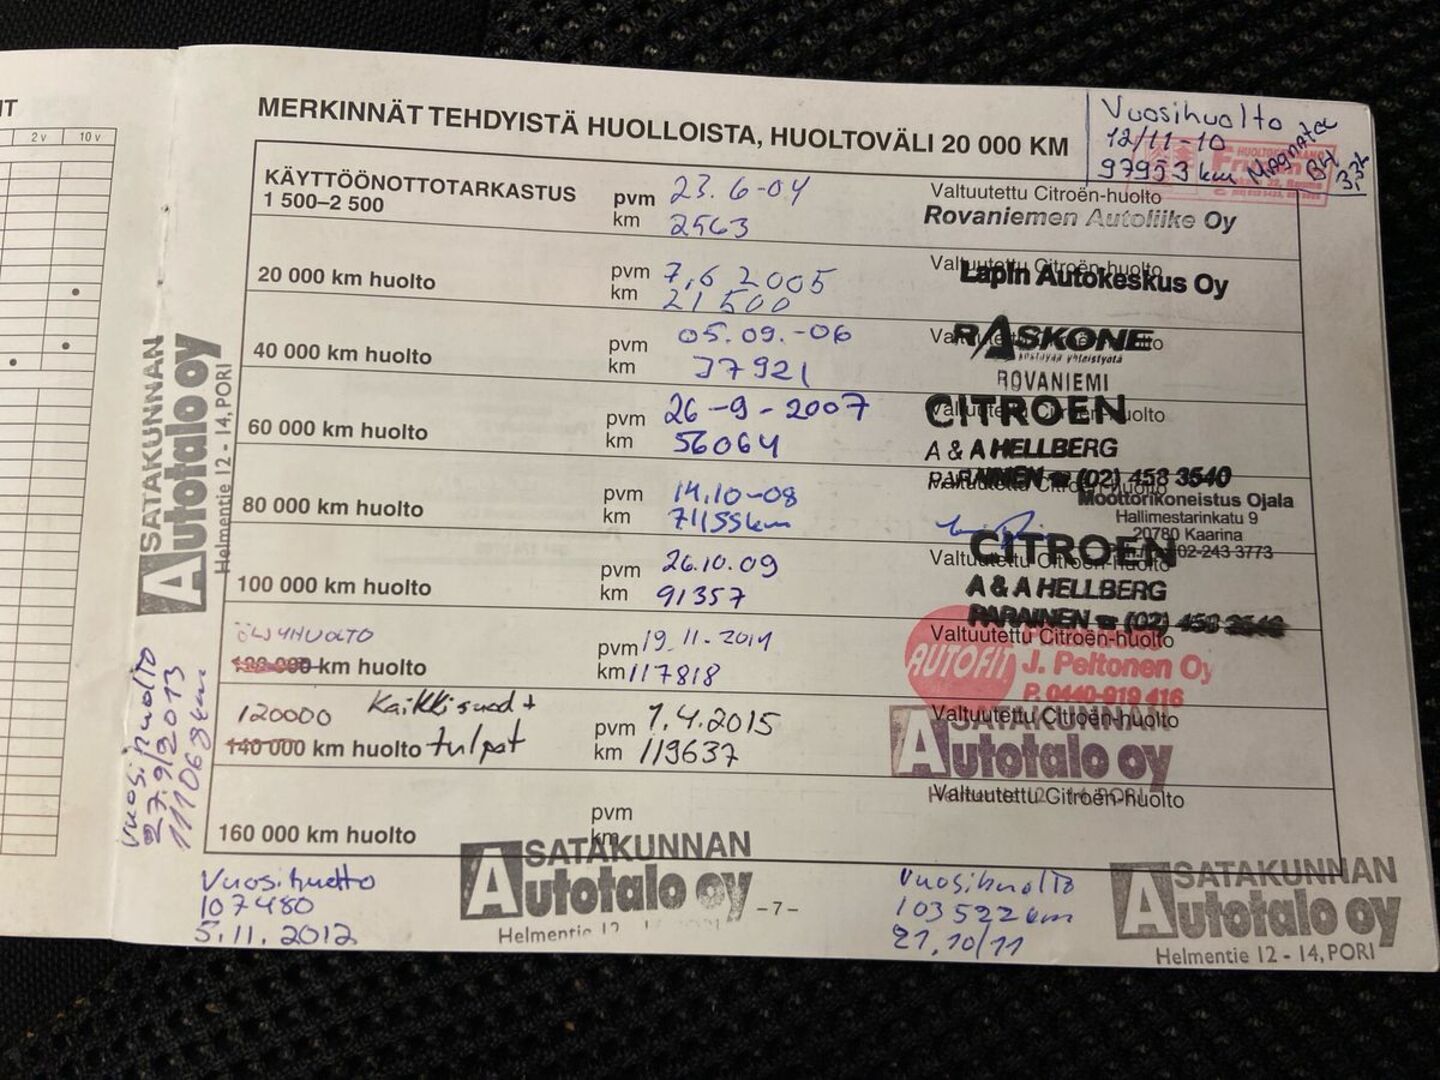 IT
2 v 10 v
MERKINNÄT TEHDYISTÄ HUOLLOISTA, HUOLTOVÄLI 20 000 KM
Vuosihuolto
12/11-10
97953 km Magnatec
3,3L
KÄYTTÖÖNOTTOTARKASTUS
1 500–2 500
pvm 23.6-04
km 2563
Valtuutettu Citroën-huolto
Rovaniemen Autoliike Oy
20 000 km huolto
pvm 7.6 2005
km 21500
Valtuutettu Citroën-huolto
Lapin Autokeskus Oy
40 000 km huolto
pvm 05.09.-06
km 37921
RASKONE
ROVANIEMI
60 000 km huolto
pvm 26-9-2007
km 56064
Valtuutettu Citroën-huolto
CITROEN
A & A HELLBERG
PARAINEN ☎ (02) 458 3540
80 000 km huolto
pvm 14.10-08
km 71155km
Valtuutettu Citroën-huolto
Moottorikoneistus Ojala
Hallimestarinkatu 9
20780 Kaarina
02-243 3773
100 000 km huolto
pvm 26.10.09
km 91357
Valtuutettu Citroën-huolto
CITROEN
A & A HELLBERG
PARAINEN ☎ (02) 458 3540
ÖLJYHUOLTO
120 000 km huolto
pvm 19.11-2014
km 117818
Valtuutettu Citroën-huolto
AUTOFIT
J. Peltonen Oy
P. 0440-919 416
120000 Kaikki suod +
140 000 km huolto tulpat
pvm 1.4.2015
km 119637
Valtuutettu Citroën-huolto
SATAKUNNAN
Autotalo oy
160 000 km huolto
pvm
km
Valtuutettu Citroën-huolto
SATAKUNNAN
Autotalo oy
Helmentie 12 - 14, PORI
vuosihuolto
27.9/2013
111068 km
Vuosihuolto
107480
5.11.2012
SATAKUNNAN
Autotalo oy
Helmentie 12
–7–
Vuosihuolto
103522 km
21.10/11
SATAKUNNAN
Autotalo oy
Helmentie 12 - 14, PORI